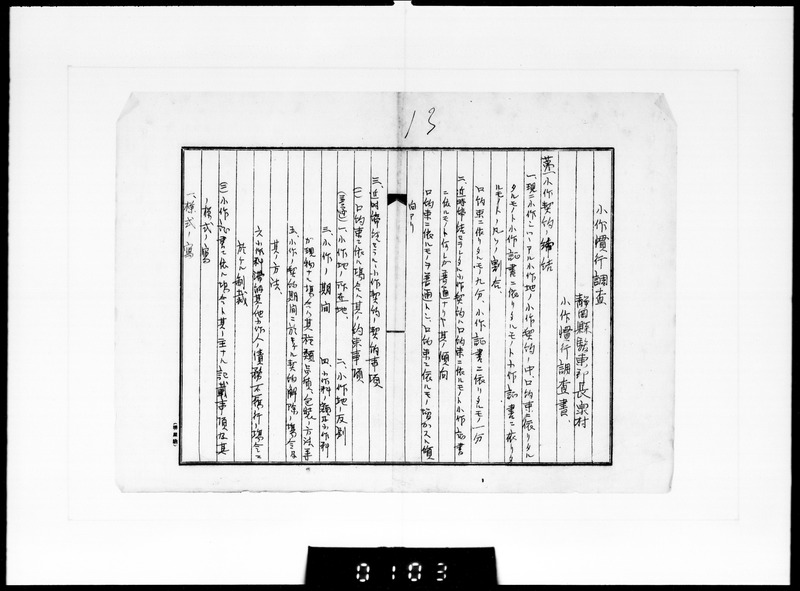 13
小作慣行調査
静岡縣駿東郡長泉村
小作慣行調査書、
第一 小作契約ノ締結
一、現ニ小作シツヽアル小作地ノ小作契約ノ中、口約束ニ依リタル
モノト小作証書ニ依リタルモノトノ凡ソノ割合
口約束ニ依リタルモノ九分、小作証書ニ依リタルモノ一分
二、近時締結セラレタル小作契約ハ口約束ニ依ルモノト小作証書
ニ依ルモノト何レガ普通ナリヤ其ノ傾向
口約束ニ依ルモノヲ普通トシ、口約束ニ依ルモノ
向アリ
三、近時締結セラルヽ小作契約ノ契約事項
(一)口約束ニ依ル場合ハ其ノ約束事項
一、小作地ノ所在地、 二、小作地ノ反別
三、小作ノ期間 四、小作料ノ額及小作料
ガ現物ナル場合ハ其種類品質、包装ノ方法等
五、小作ノ契約期間ニ於ケル契約解除ノ場合及
其ノ方法
六、小作料滞納其他小作人ノ債務不履行ノ場合ニ
於ケル制裁
(二)小作証書ニ依ル場合ハ其ノ主ナル記載事項及其
ノ様式ノ寫
一、様式ノ寫
0103